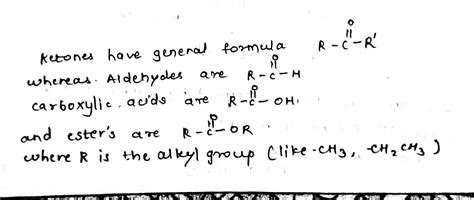 Ketones have general formula R-C(=O)-R'
whereas. Aldehydes are R-C(=O)-H
carboxylic acids are R-C(=O)-OH.
and ester's are R-C(=O)-OR
where R is the alkyl group (like -CH3, -CH2CH3)